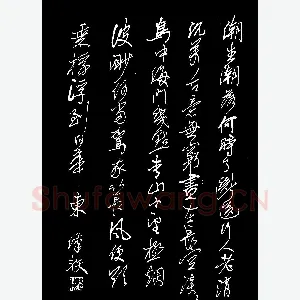 潮生潮落何時了斷送行人老消
沉萬古意無窮盡在長空澹
鳥中海門幾點青山小望極烟
波渺何當駕我以長風便欲
乘桴浮到日華東
Shufawang.CN